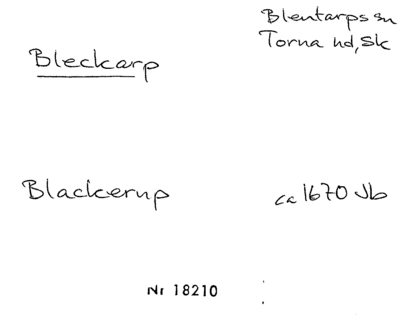 Blentarps sn
Torna hd, Sk
Bleckarp
Blackerup
ca 1670 Jb
Nr 18210